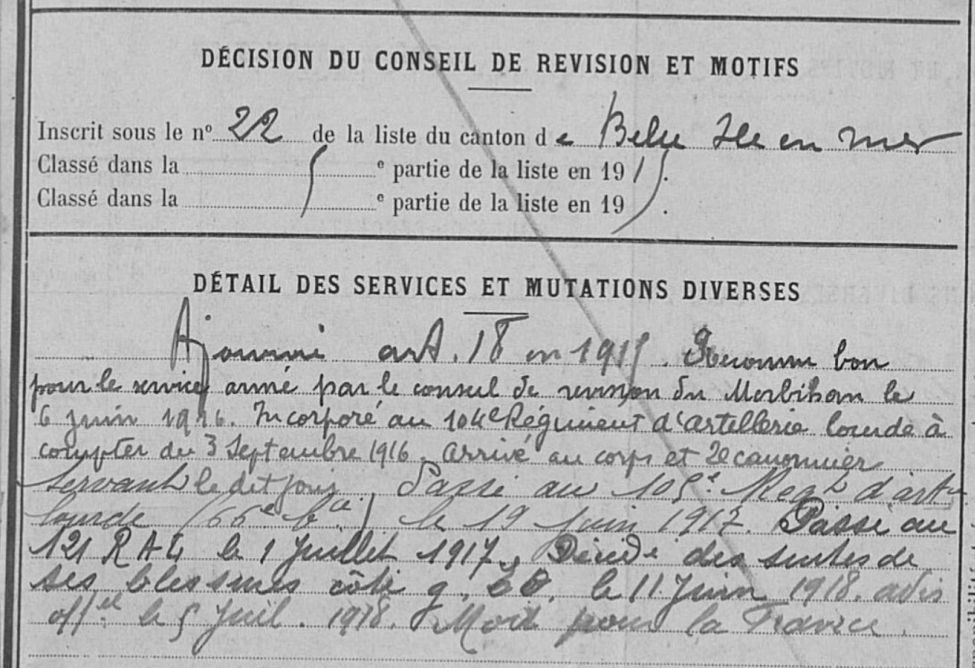 DÉCISION DU CONSEIL DE REVISION ET MOTIFS
Inscrit sous le n° 22 de la liste du canton de Belle Ile en mer
Classé dans la e partie de la liste en 19
Classé dans la e partie de la liste en 19
DÉTAIL DES SERVICES ET MUTATIONS DIVERSES
Ajourné art. 18 en 1915. Reconnu bon
pour le service armé par le conseil de revision du Morbihan le
6 juin 1916. Incorporé au 104e Régiment d'artellerie lourde à
compter du 3 Septembre 1916. arrivé au corps et 2e canonnier
servant le dit jour. Passé au 105e Regt d'art
lourde (66e bie) le 19 Juin 1917. Passé au
121 RAL le 1 Juillet 1917. Décédé des suites de
ses blessures côté g. le 11 Juin 1918. avis
offel le 5 Juil. 1918. Mort pour la France.